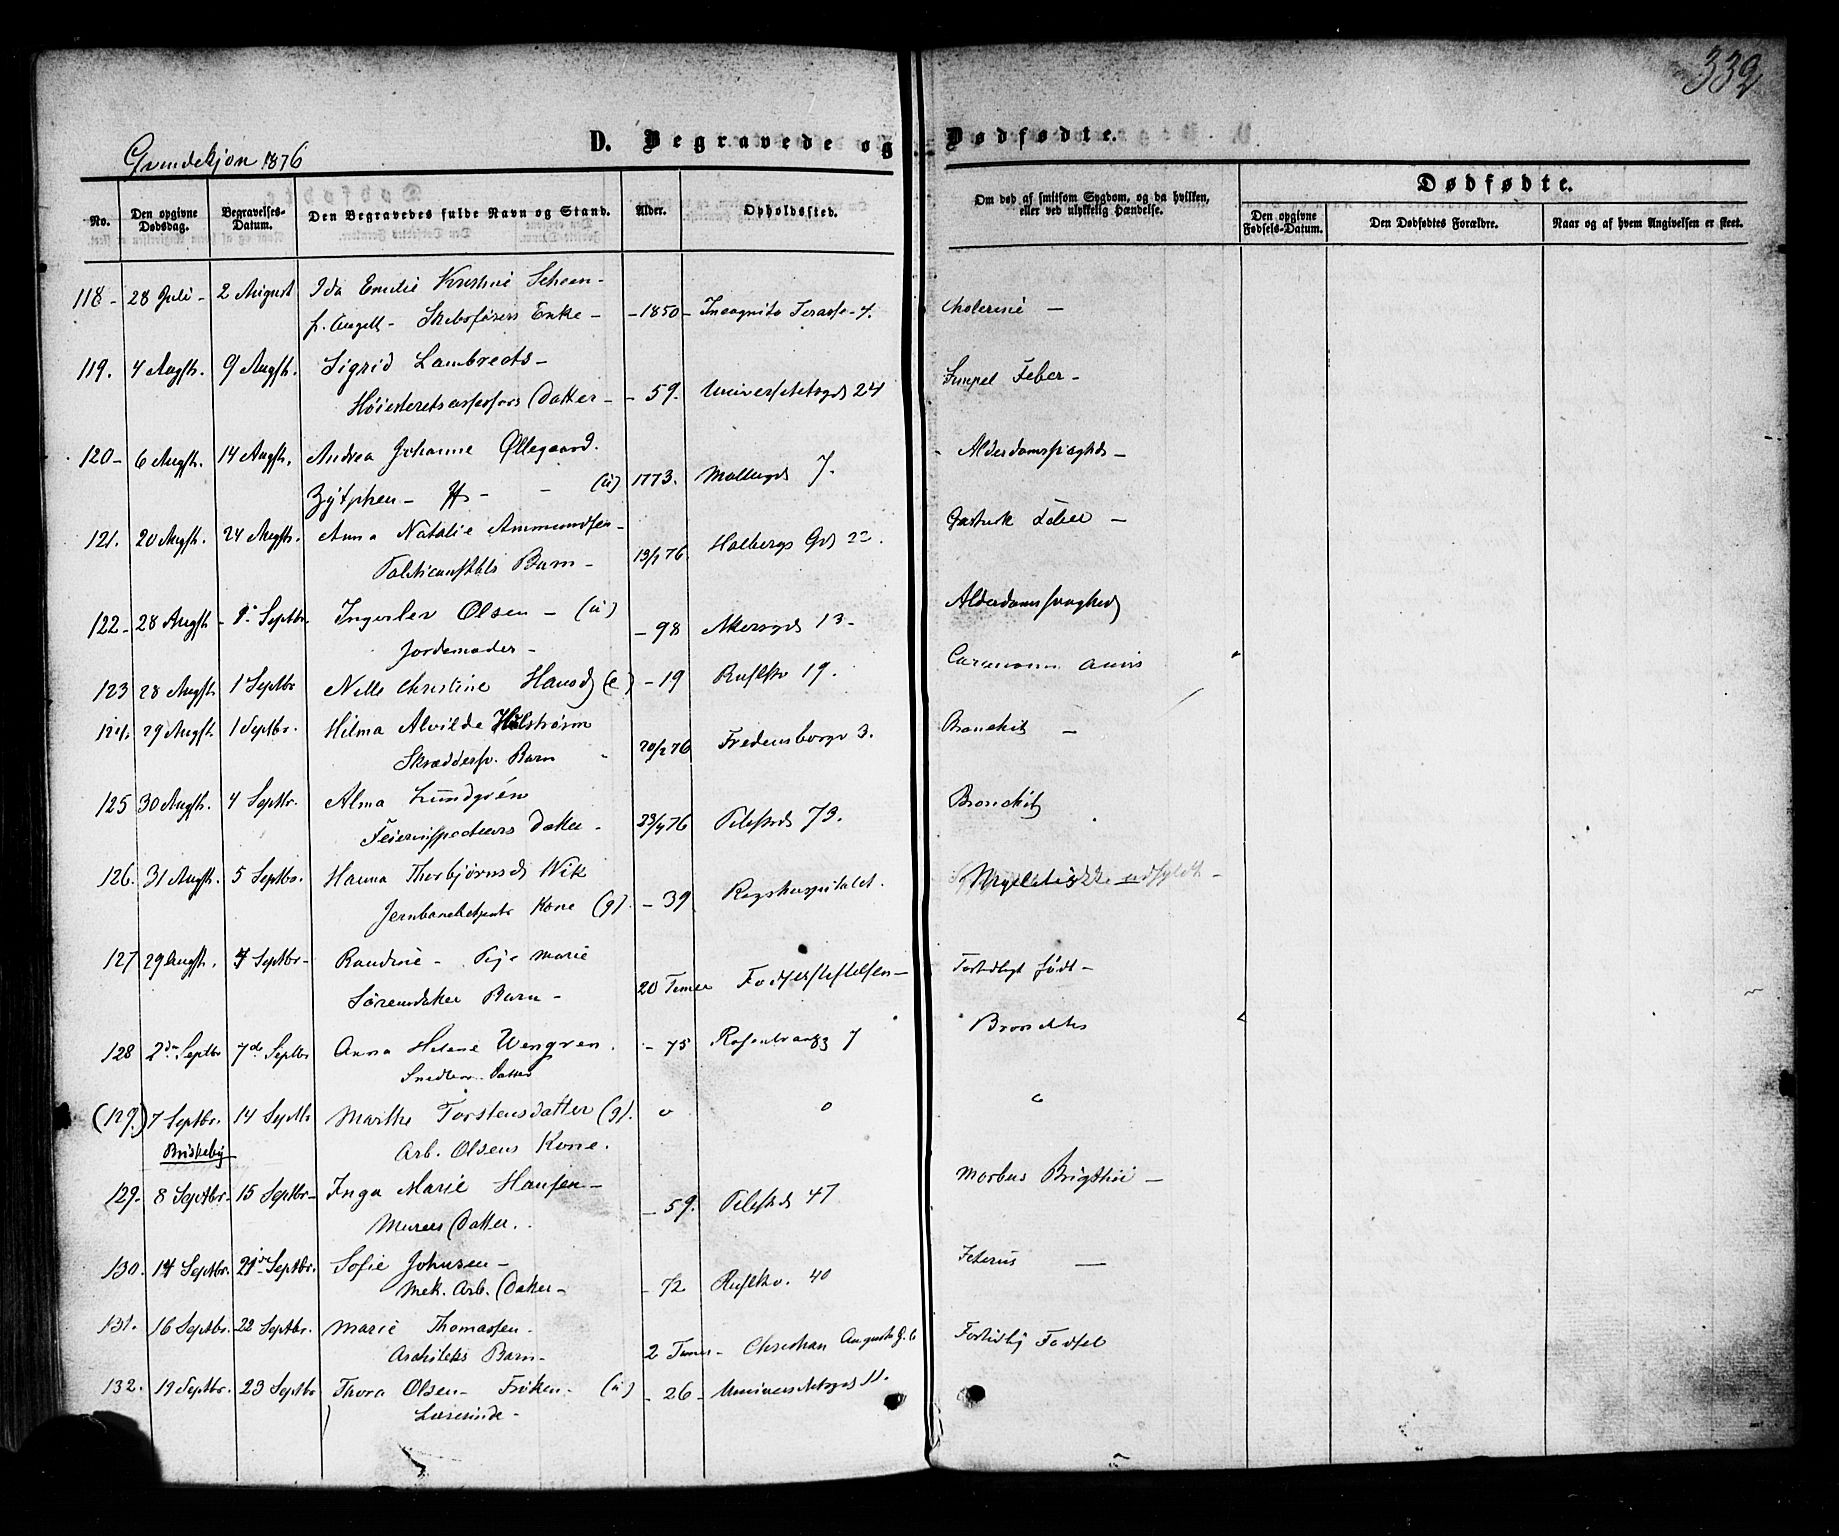 332
D. Begravede og Dødfødte.
Qvindekjøn 1876
No.
Den opgivne Dødsdag.
Begravelses-Datum.
Den Begravedes fulde Navn og Stand.
Alder.
Opholdssted.
Om død af smitsom Sygdom, og da hvilken, eller ved ulykkelig Hændelse.
Dødfødte.
Den opgivne Fødsels-Datum.
Den Dødfødtes Forældre.
Naar og af hvem Angivelsen er skeet.
118 - 28 Juli - 2 August Ida Emilie Kristine Scheen -
f. Angell - Skibsførers Enke - - 1850 - Incognito Terasse - 7. Cholerine -
119. 4 Augst. 9 Augst. Sigrid Lambrects -
Høiesteretsassessors Datter - - 59. Universitetsgd 24 Simpel Feber -
120 - 6 Augst. 14 Augst. Andrea Johanne Øllegaard.
Zÿtphen - - (ú) 1773. Møllergd 7. Alderdomssvaghd -
121. 20 Augst. 24 Augst. Anna Natalie Ammundsen -
Politiconstbls Barn - 13/1 76 Holbergs Gd 22. Gastrisk Feber -
122 - 28 Augst - 1 Septbr. Ingerlev Olsen - (ú)
Jordemoder - - 98 Akersgd 13 - Alderdomssvaghed
123 28 Augst. 1 Septbr Nille Christine Hansd (e) - 19 Russlkv 19.
124. 29 Augst. 1 Septbr. Hilma Alvilde Holstrøm
Skræddersv. Barn 20/2 76 Fredensborgv 3. Bronchit -
125 30 Augst. 4 Septbr. Alma Lundgrén
Feierinspecteurs Datter - 23/4 76 Pilestrd 73. Bronchit
126. 31 Augst. 5 Septbr. Hanna Thorbjørnsd Wik
Jernbanebetjents Kone (g). - 39 Rigshospitalet.
127 29 Augst. 4 Septbr - Randine - Pige Marie
Sørensdatter Barn - 20 Timer Fødselsstiftelsen - Fortidligt født -
128 2den Septbr 7de Septbr Anna Helene Wengren. - 75 Rosenkrantzg 7 Bronchitis
Snedker Datter
(129.) 7 Septbr. 14 Septbr Marthe Torstensdatter (g). o o o
Briskeby Arb. Olsens Kone.
129. 8 Septbr. 15 Septbr - Inga Marie Hansen -
Murers Datter. - 59. Pilestrd 47 Morbus Brigthii -
130. 14 Septbr. 21 Septbr. Sofie Johnsen -
Mek. Arb. Datter - - 72 Russlkv. 40 Icterus -
131. 16 Septbr. 22 Septbr. Marie Thomassen -
Architekts Barn - 2 Timer - Christian Augusts G. 6 Fortidlig Fødsel
132. 19 Septbr. 23 Septbr Thora Olsen - Frøken - (ú) - 26 - Universitetsgd 11.
Lærerinde -